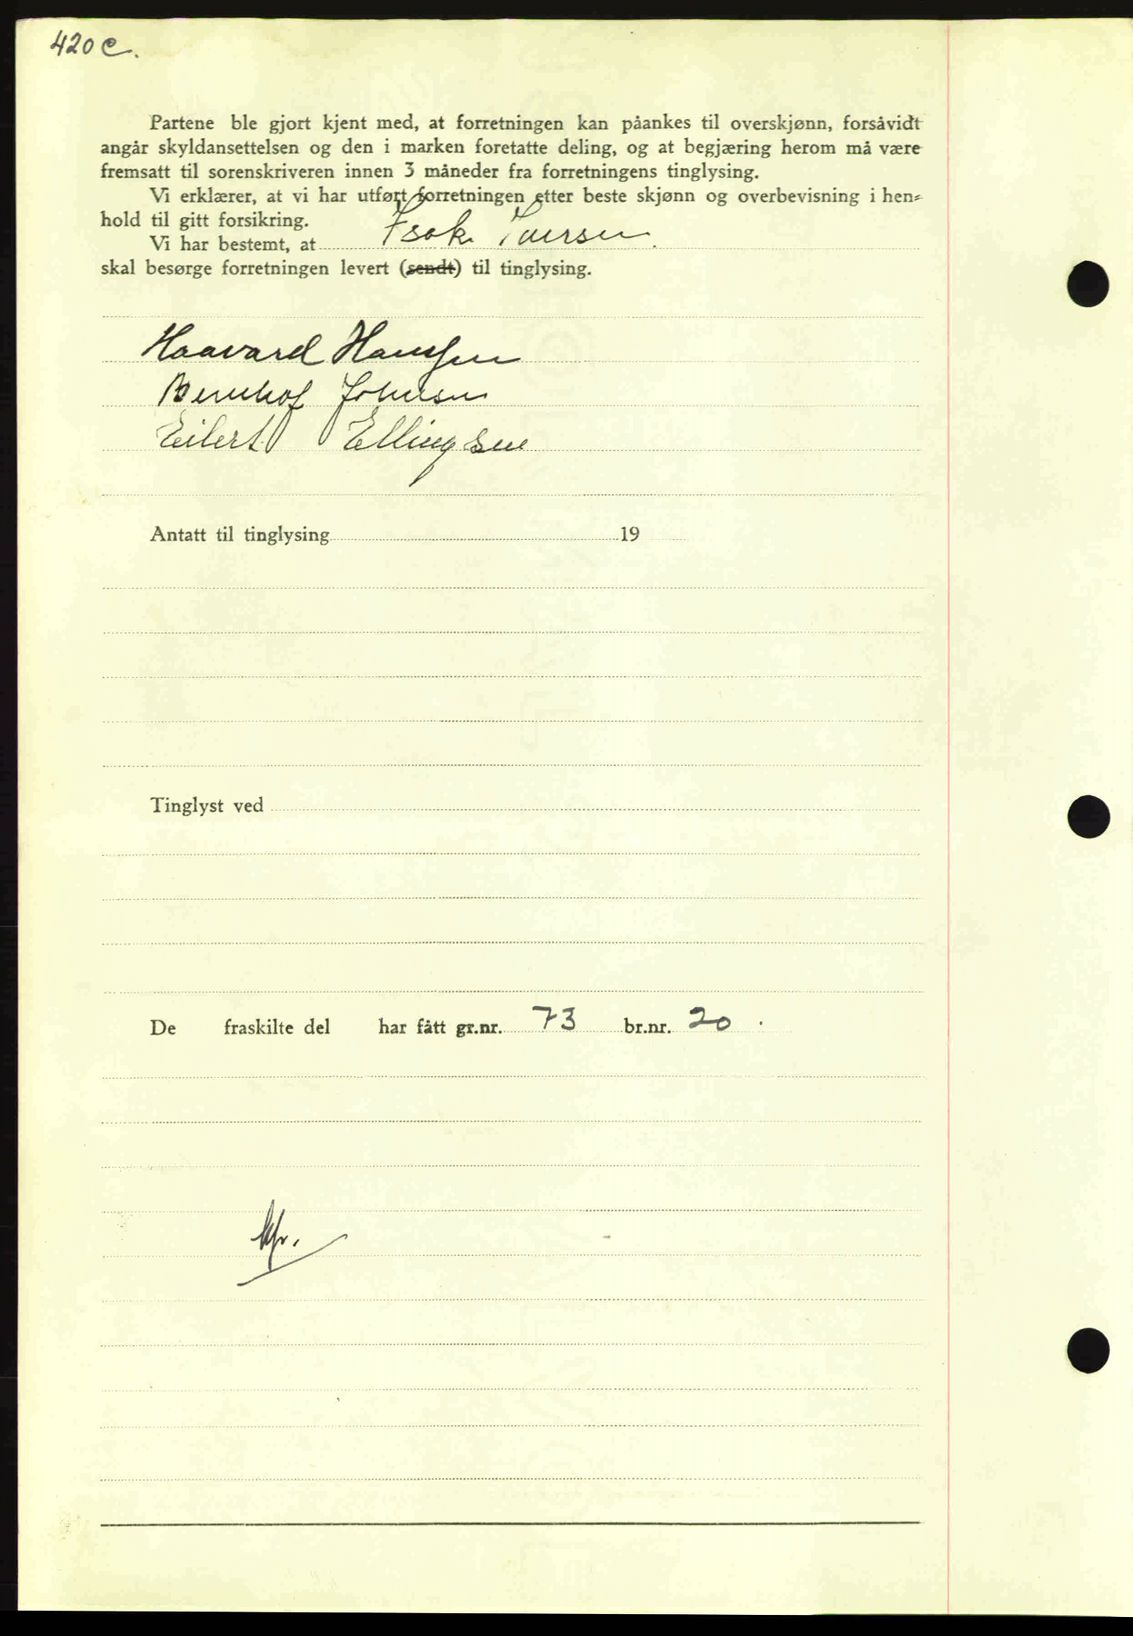 420 c.
Partene ble gjort kjent med, at forretningen kan påankes til overskjønn, forsåvidt
angår skyldansettelsen og den i marken foretatte deling, og at begjæring herom må være
fremsatt til sorenskriveren innen 3 måneder fra forretningens tinglysing.
Vi erklærer, at vi har utført forretningen etter beste skjønn og overbevisning i hen-
hold til gitt forsikring.
Vi har bestemt, at Isak Iversen
skal besørge forretningen levert (sendt) til tinglysing.
Haavard Hanssen
Bernhof Johnsen
Eilert Ellingsen
Antatt til tinglysing 19
Tinglyst ved
De fraskilte del har fått gr.nr. 73 br.nr. 20.